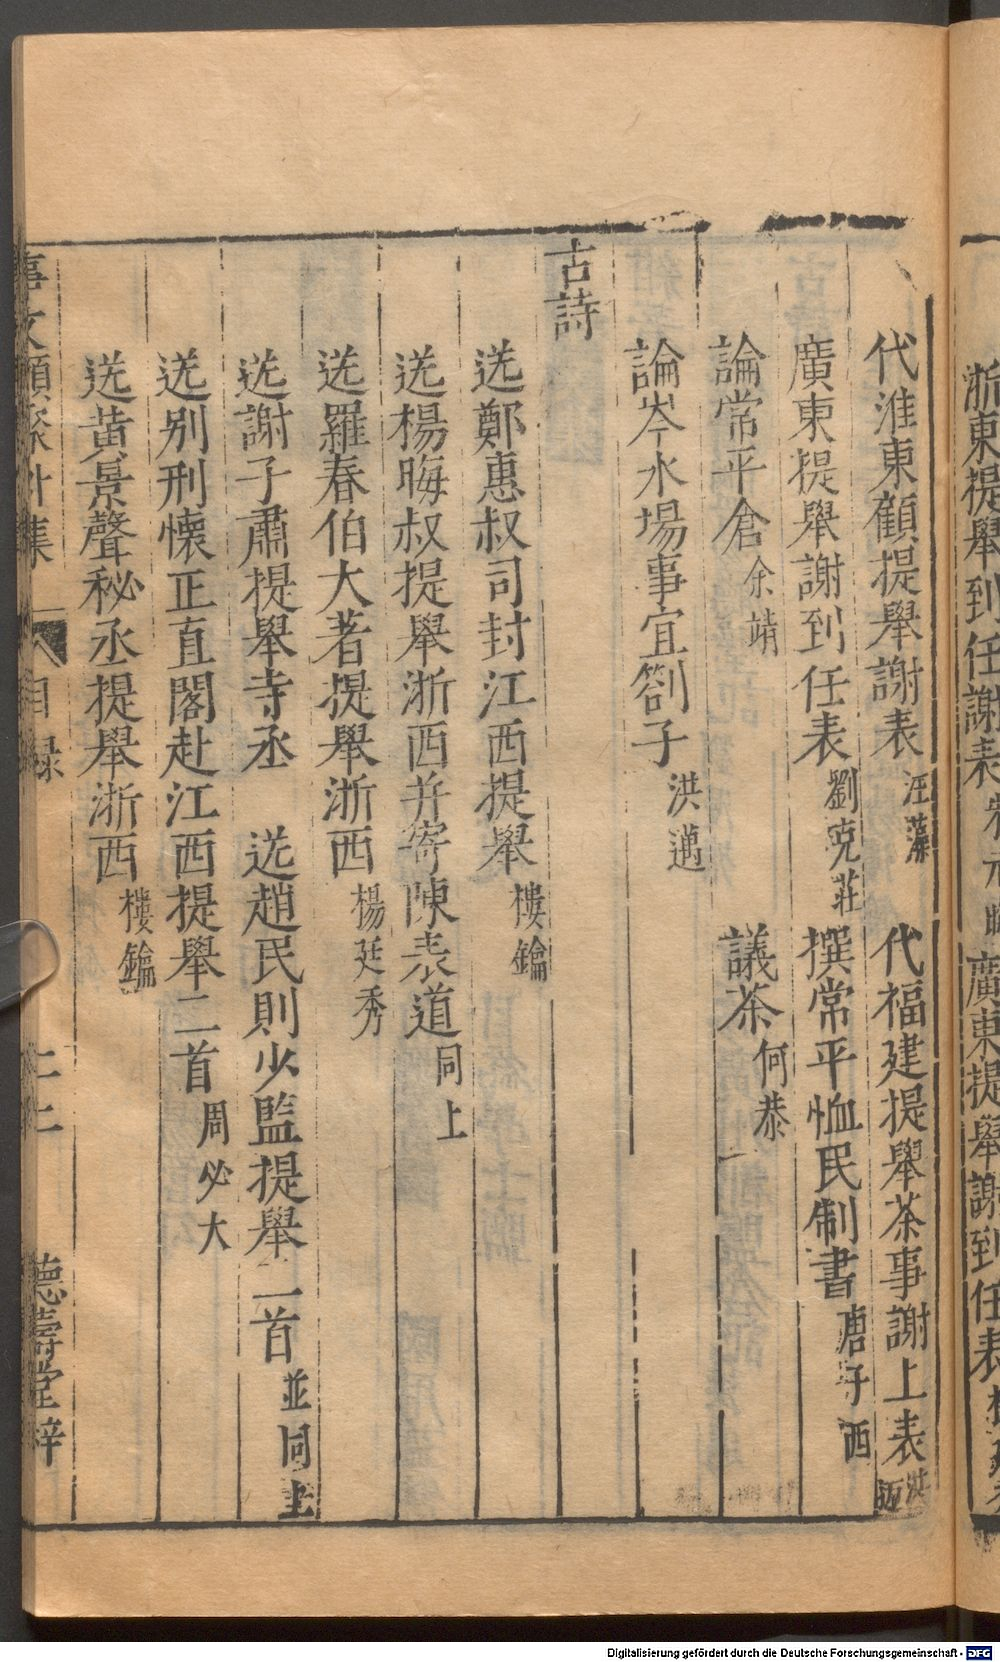 浙東提舉到任謝表 廣東提舉謝到任表
代淮東顧提舉謝表 汪藻 代福建提舉茶事謝上表 洪适
廣東提舉謝到任表 劉克莊 撰常平恤民制書 唐子西
論常平倉 余靖 議茶 何恭
論岑水場事宜劄子 洪邁
古詩
送鄭惠叔司封江西提舉 樓鑰
送楊晦叔提舉浙西并寄陳表道 同上
送羅春伯大著提舉浙西 楊廷秀
送謝子肅提舉寺丞 送趙民則少監提舉二首 並同上
送别刑懐正直閣赴江西提舉二首 周必大
送黄景聲秘丞提舉浙西 樓鑰
事文類聚外集 目録 二十二 德壽堂梓
Digitalisierung gefördert durch die Deutsche Forschungsgemeinschaft - DFG